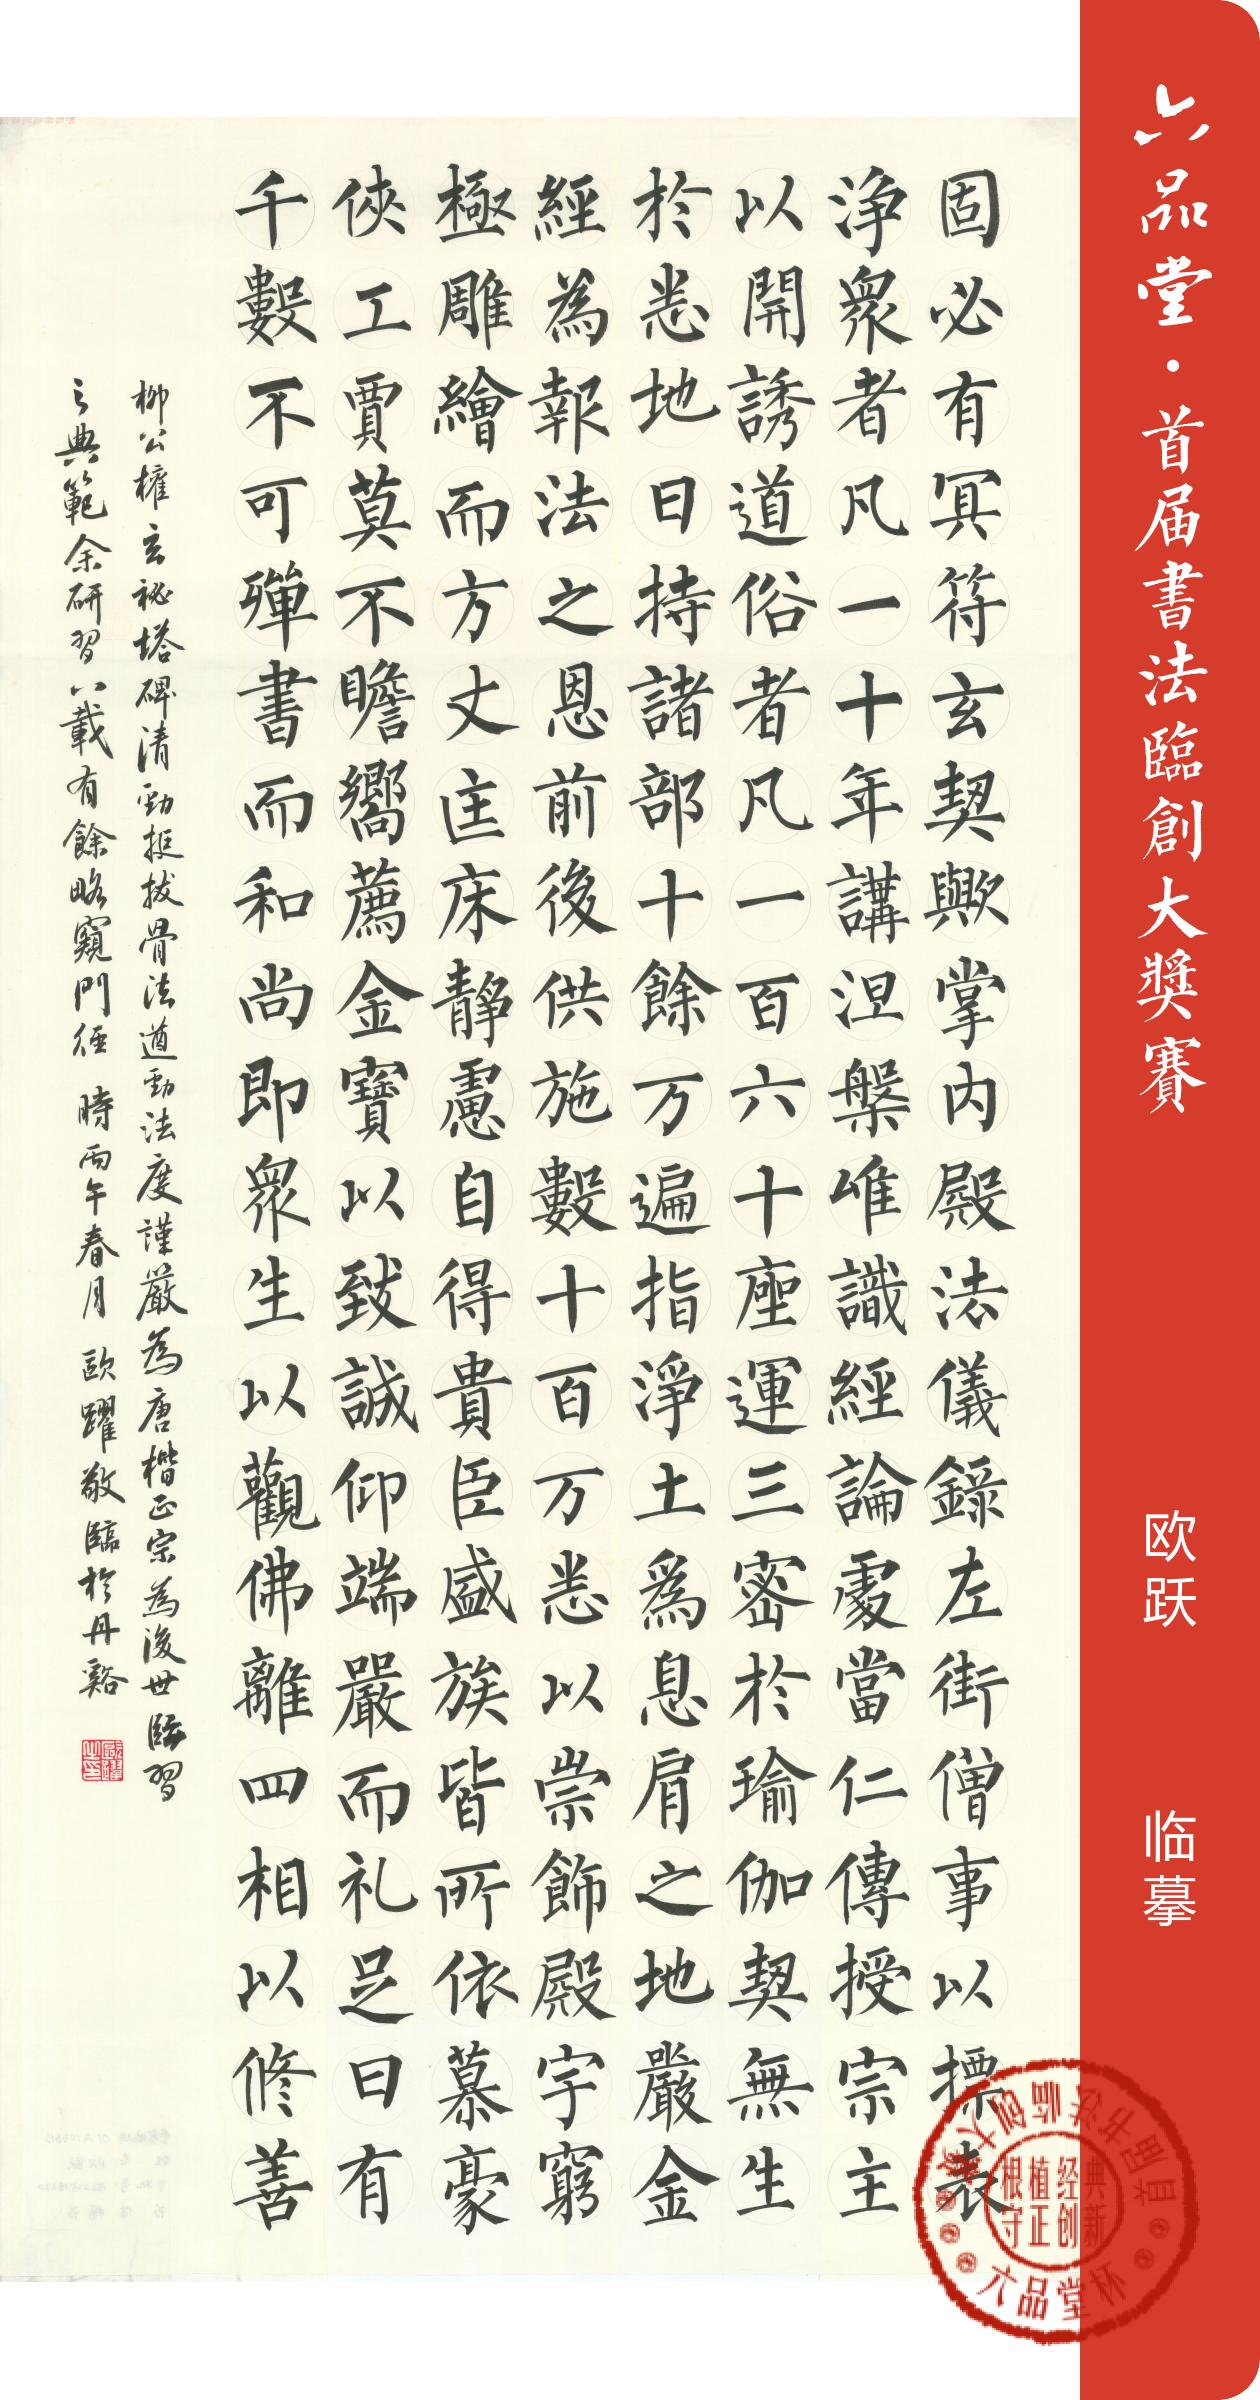 六品堂·首届書法臨創大獎賽
欧跃 临摹
固必有冥符玄契歟掌内殿法儀錄左街僧事以摽表
淨衆者凡一十年講涅槃唯識經論處當仁傳授宗主
以開誘道俗者凡一百六十座運三密於瑜伽契無生
於悉地日持諸部十餘万遍指淨土為息肩之地嚴金
經為報法之恩前後供施數十百万悉以崇飾殿宇窮
極雕繪而方丈匡床靜慮自得貴臣盛族皆所依慕豪
俠工賈莫不瞻嚮薦金寶以致誠仰端嚴而礼足日有
千數不可殫書而和尚即衆生以觀佛離四相以修善
柳公權玄祕塔碑清勁挺拔骨法遒勁法度謹嚴為唐楷正宗為後世臨習
之典範余研習八載有餘略窺門徑 時丙午春月 歐躍敬臨於丹谿
根植经典
守正创新
六品堂杯